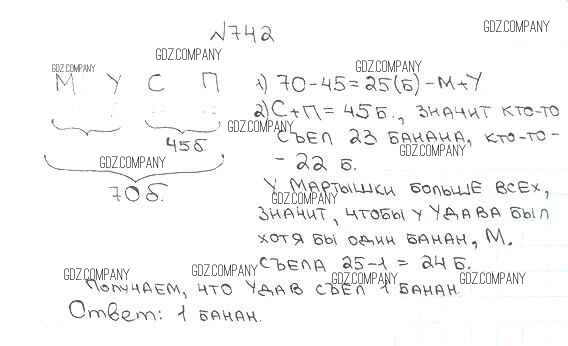 №742
GDZ.COMPANY
GDZ.COMPANY
GDZ.COMPANY
GDZ.COMPANY
М У С П
1) 70-45=25(б)-М+У
2) С+П=45б., ЗНАЧИТ КТО-ТО
GDZ.COMPANY
СЪЕЛ 23 БАНАНА, КТО-ТО-
45б
GDZ.COMPANY
- 22 б.
GDZ.COMPANY
70б.
У МАРТЫШКИ БОЛЬШЕ ВСЕХ,
GDZ.COMPANY
ЗНАЧИТ, ЧТОБЫ У УДАВА БЫЛ
ХОТЯ БЫ ОДИН БАНАН, М.
СЪЕЛА 25-1=24б.
GDZ.COMPANY
GDZ.COMPANY
GDZ.COMPANY
GDZ.COMPANY
ПОЛУЧАЕМ, ЧТО УДАВ СЪЕЛ 1 БАНАН
Ответ: 1 БАНАН.